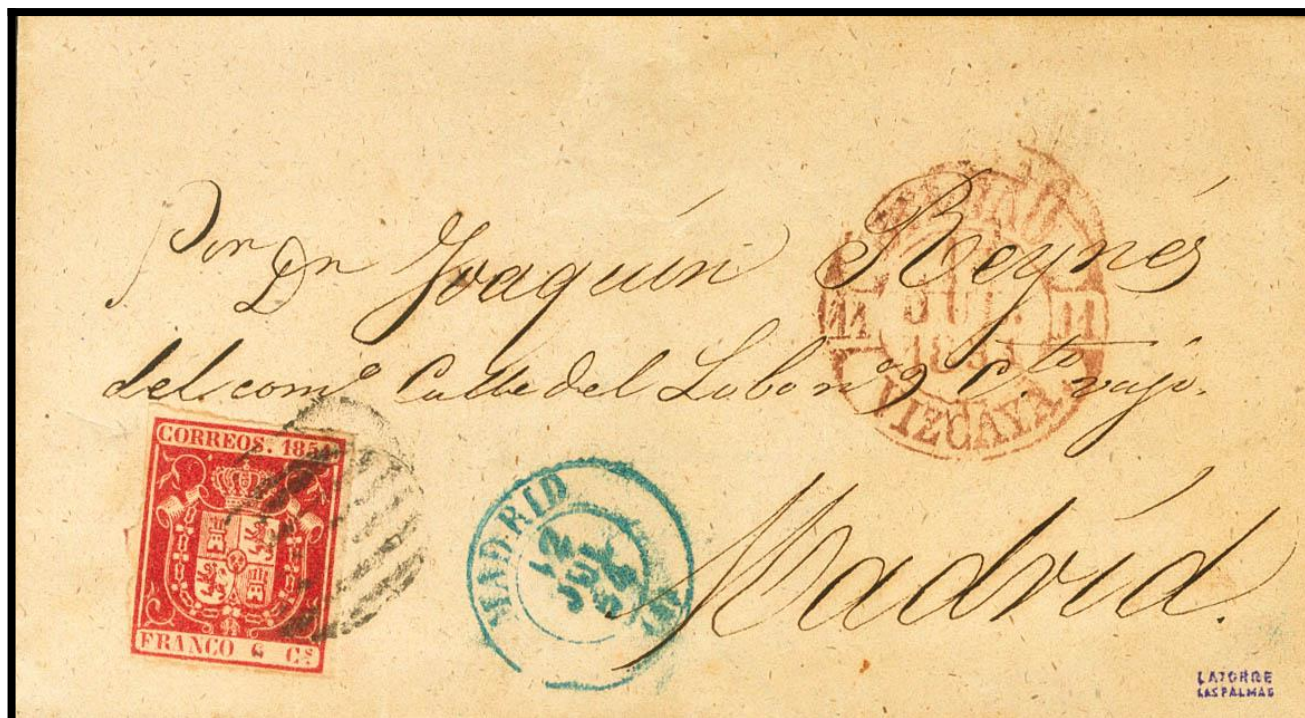 Por Dn Joaquín Reynés
del comº Calle del Lobo nº 9 Cto bajo.
Madrid.
JUL.
11 11
VIZCAYA.
CORREOS. 1854
FRANCO 6 Cs
MADRID
12
JUL
54
LATORRE
LAS PALMAS